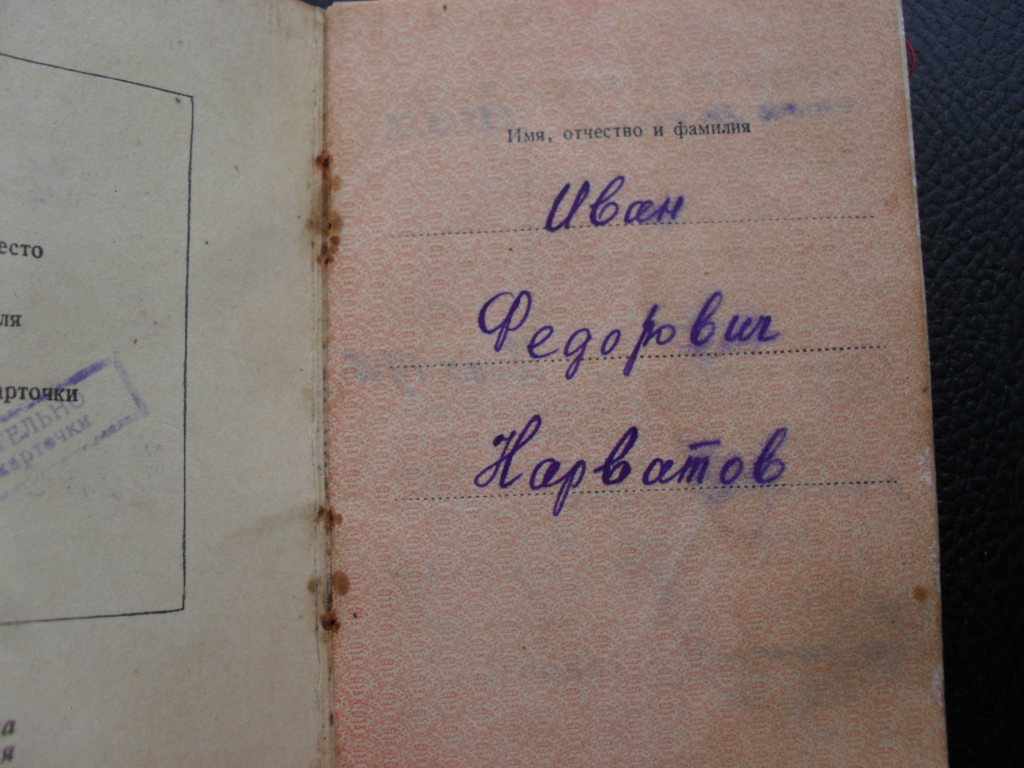 есто
ля
арточки
ТЕЛЬНО
карточки
а
я
Имя, отчество и фамилия
Иван
Федорович
Нарватов